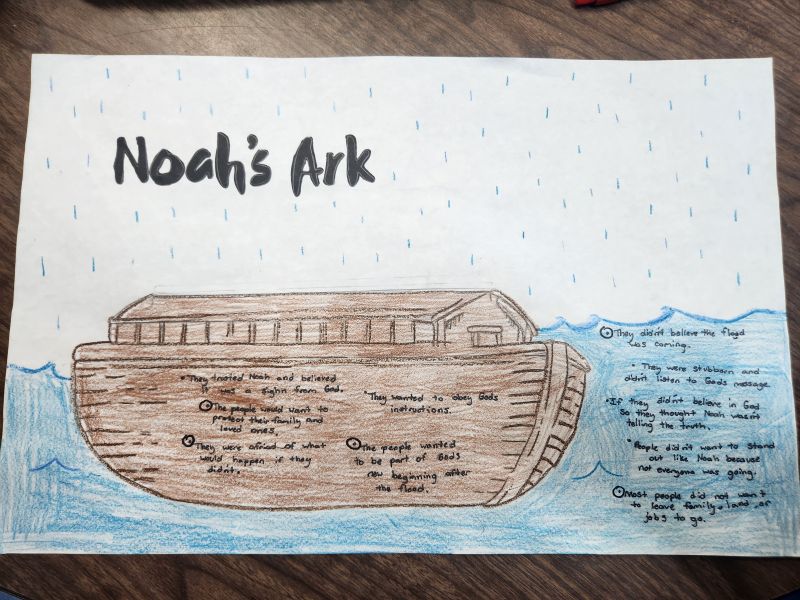 Noah's Ark
They trusted Noah and believed
it was a sighn from God.
The people would want to
protect their family and
loved ones.
They were afraid of what
would happen if they
didn't.
They wanted to obey Gods
instructions.
The people wanted
to be part of Gods
new beginning after
the flood.
They didn't believe the flood
was coming.
They were stubborn and
didn't listen to Gods message.
If they didn't believe in God
so they thought Noah wasn't
telling the truth.
People didn't want to stand
out like Noah because
not everyone was going.
Most people did not want
to leave family, land, or
jobs to go.